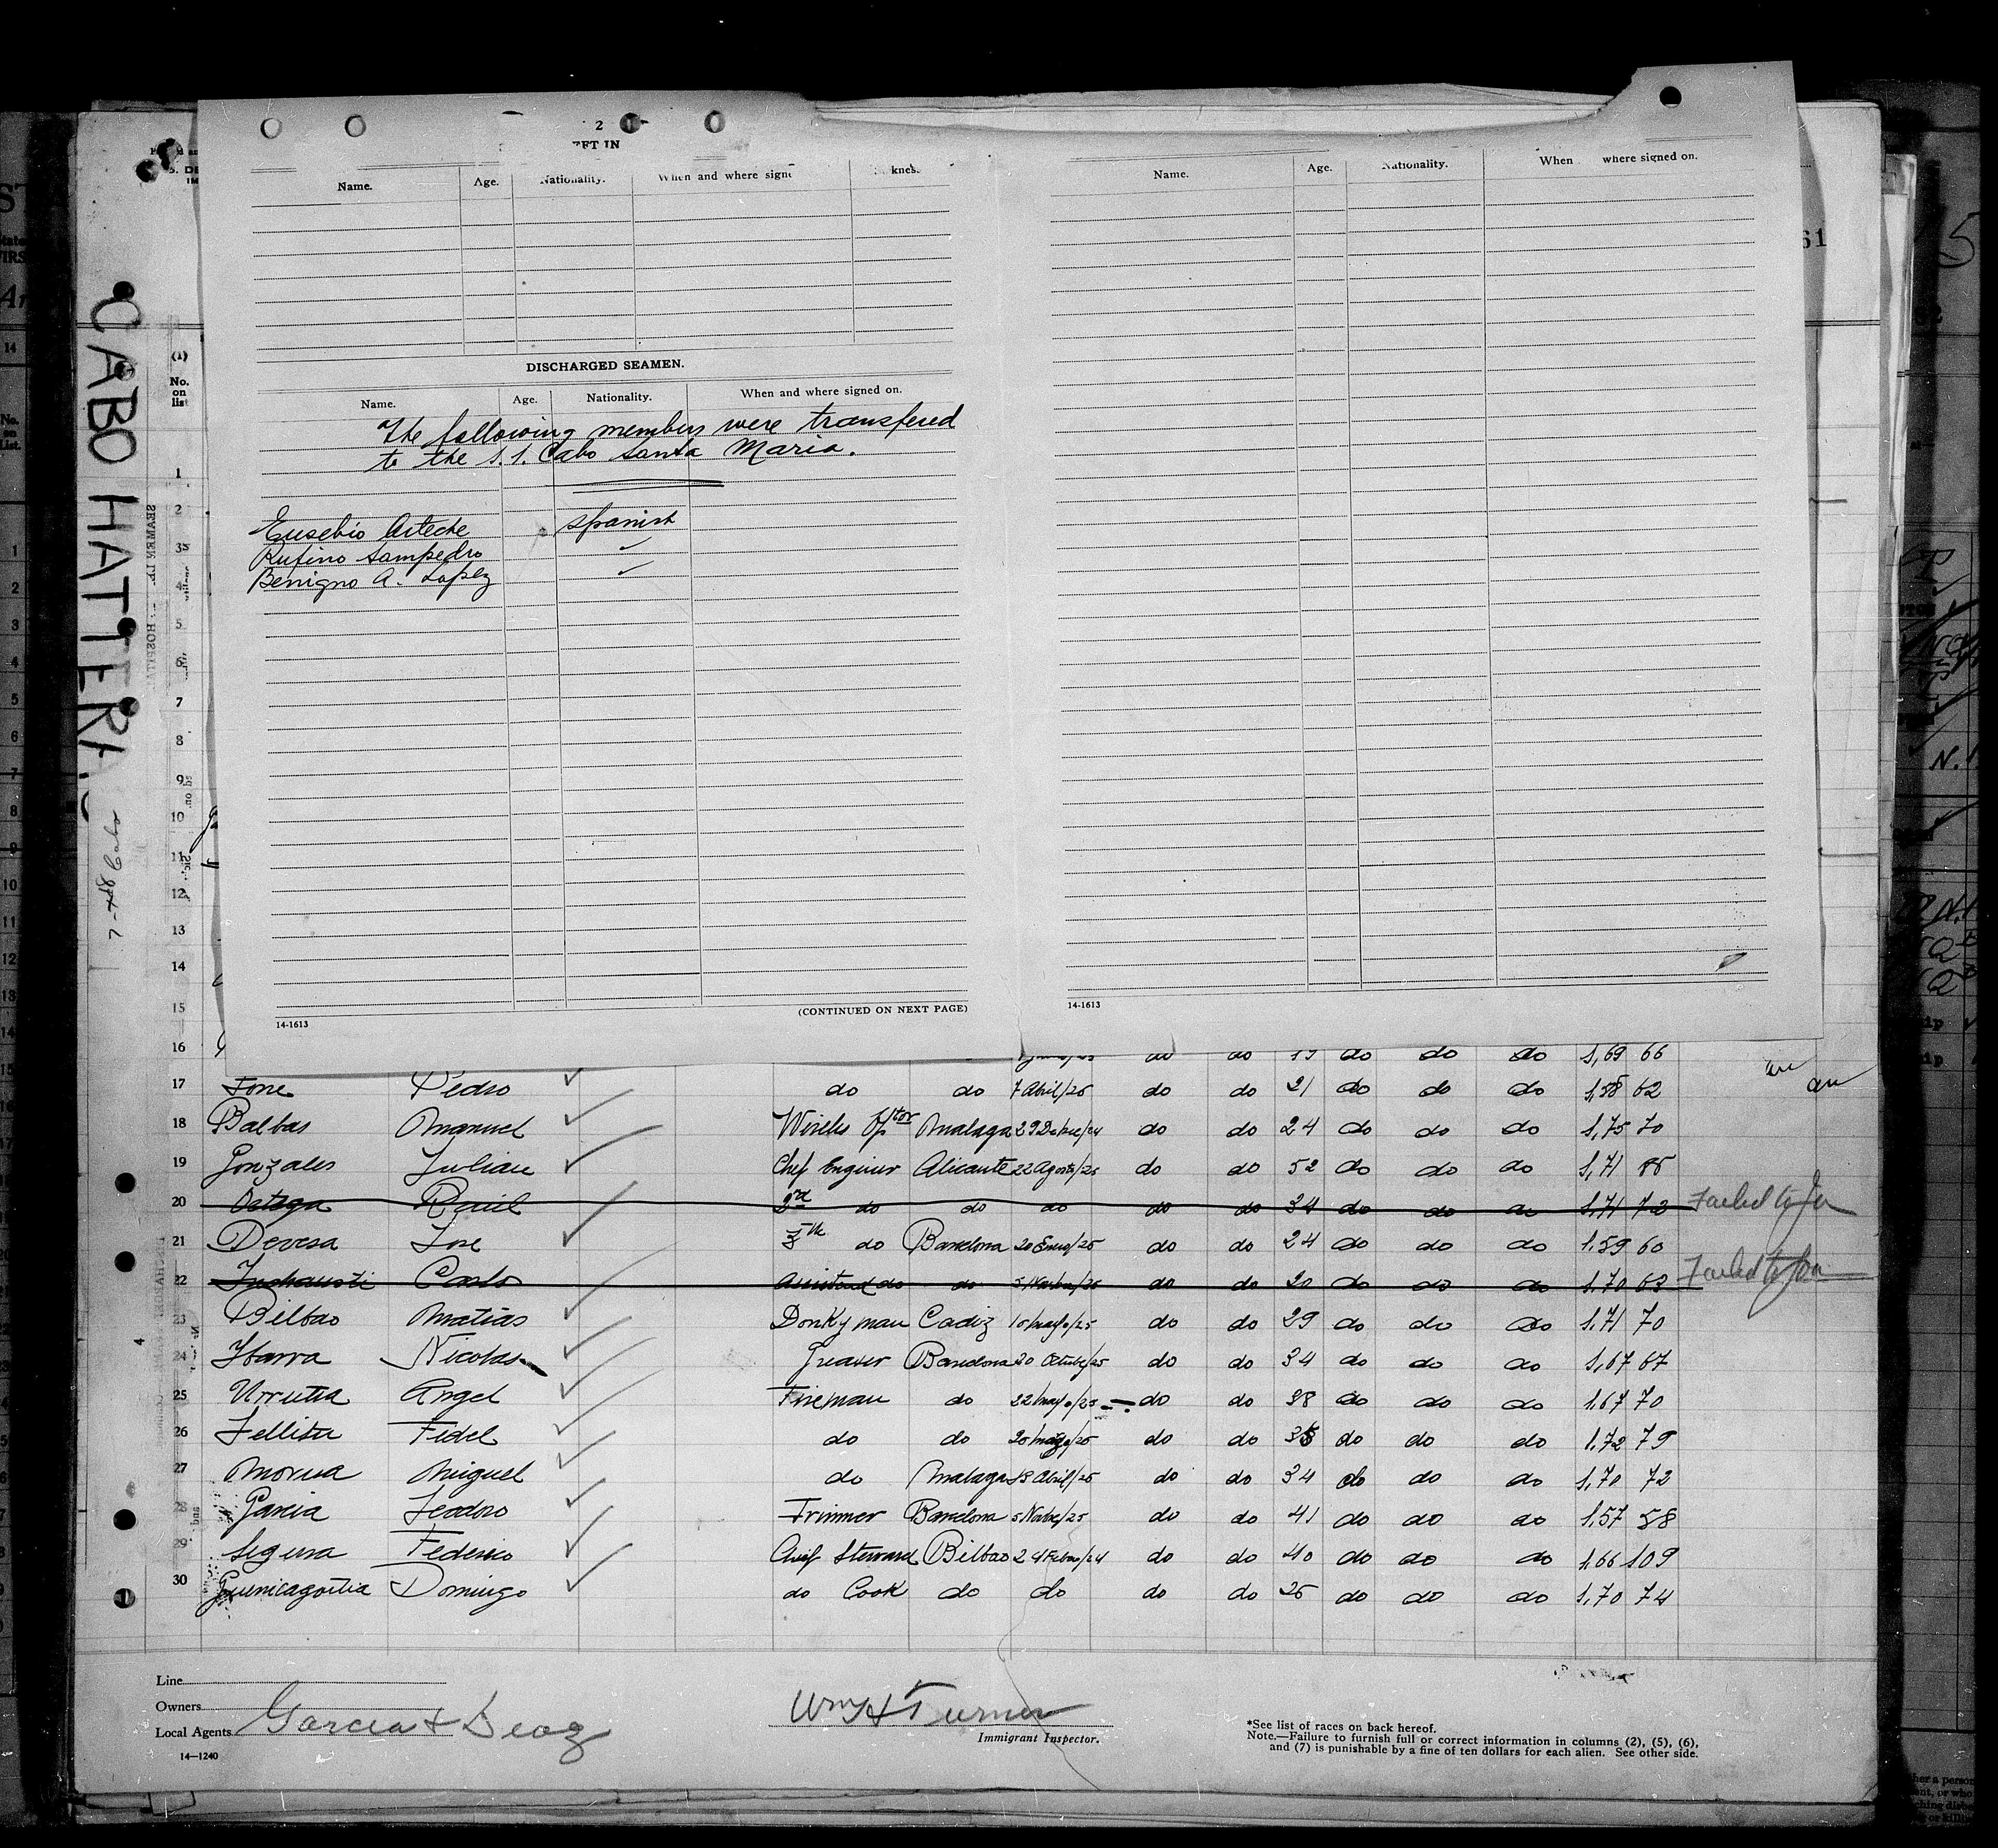 2
FT IN
Name. Age. Nationality. When and where signe
Name. Age. Nationality. When where signed on.
DISCHARGED SEAMEN.
Name. Age. Nationality. When and where signed on.
The following members were transfered
to the S.S. Cabo Santa Maria.
Eusebio Arteche Spanish
Rufino Sampedro ✓
Benigno A. Lopez ✓
14-1613 (CONTINUED ON NEXT PAGE)
14-1613
CABO HATTERAS
61
(1)
No.
on
list
1
2
3
4
5
6
7
8
9
10
11
12
13
14
15
16 do do 19 do do do 1,69 66
17 Jose Pedro ✓ do do 7 Abril/25 do do 21 do do do 1,58 62
18 Balbas Manuel ✓ Wireles Optor Malaga 29 Dcbre/24 do do 24 do do do 1,75 70
19 Gonzales Julian ✓ Chef Engineer Alicante 22 Agosto/25 do do 52 do do do 1,71 85
20 Ortega Raul 2nd do do do do do 34 do do do 1,71 72 Failed to Join
21 Devesa Jose ✓ 3th do Barcelona 20 Enero/25 do do 24 do do do 1.59 60
22 Inchausti Carlos Assistant do do 5 Novbre/25 do do 20 do do do 1.70 63 Failed to Join
23 Bilbao Matias ✓ Donkyman Cadiz 10 Mayo/25 do do 29 do do do 1,71 70
24 Ibarra Nicolas ✓ Greaser Barcelona 20 Octube/25 do do 34 do do do 1,67 67
25 Urrutia Angel ✓ Fireman do 22 Mayo/25 do do 38 do do do 1,67 70
26 Tellitu Fidel ✓ do do do do do do do 1,72 79
27 Miguel ✓ do Malaga 18 Abril/25 do do 34 do do do 1,70 72
28 Garcia Teodoro ✓ Trimmer Barcelona 5 Nvbre/25 do do 41 do do do 1,57 58
29 Segura Federico ✓ Chief Steward Bilbao 24 Febro/24 do do 40 do do do 1,66 109
30 Guenicagoitia Domingo ✓ do Cook do do do do 25 do do do 1,70 74
Line
Owners
Local Agents Garcia & Deaz
14—1240
Wm H Turner
Immigrant Inspector.
*See list of races on back hereof.
Note.—Failure to furnish full or correct information in columns (2), (5), (6),
and (7) is punishable by a fine of ten dollars for each alien. See other side.